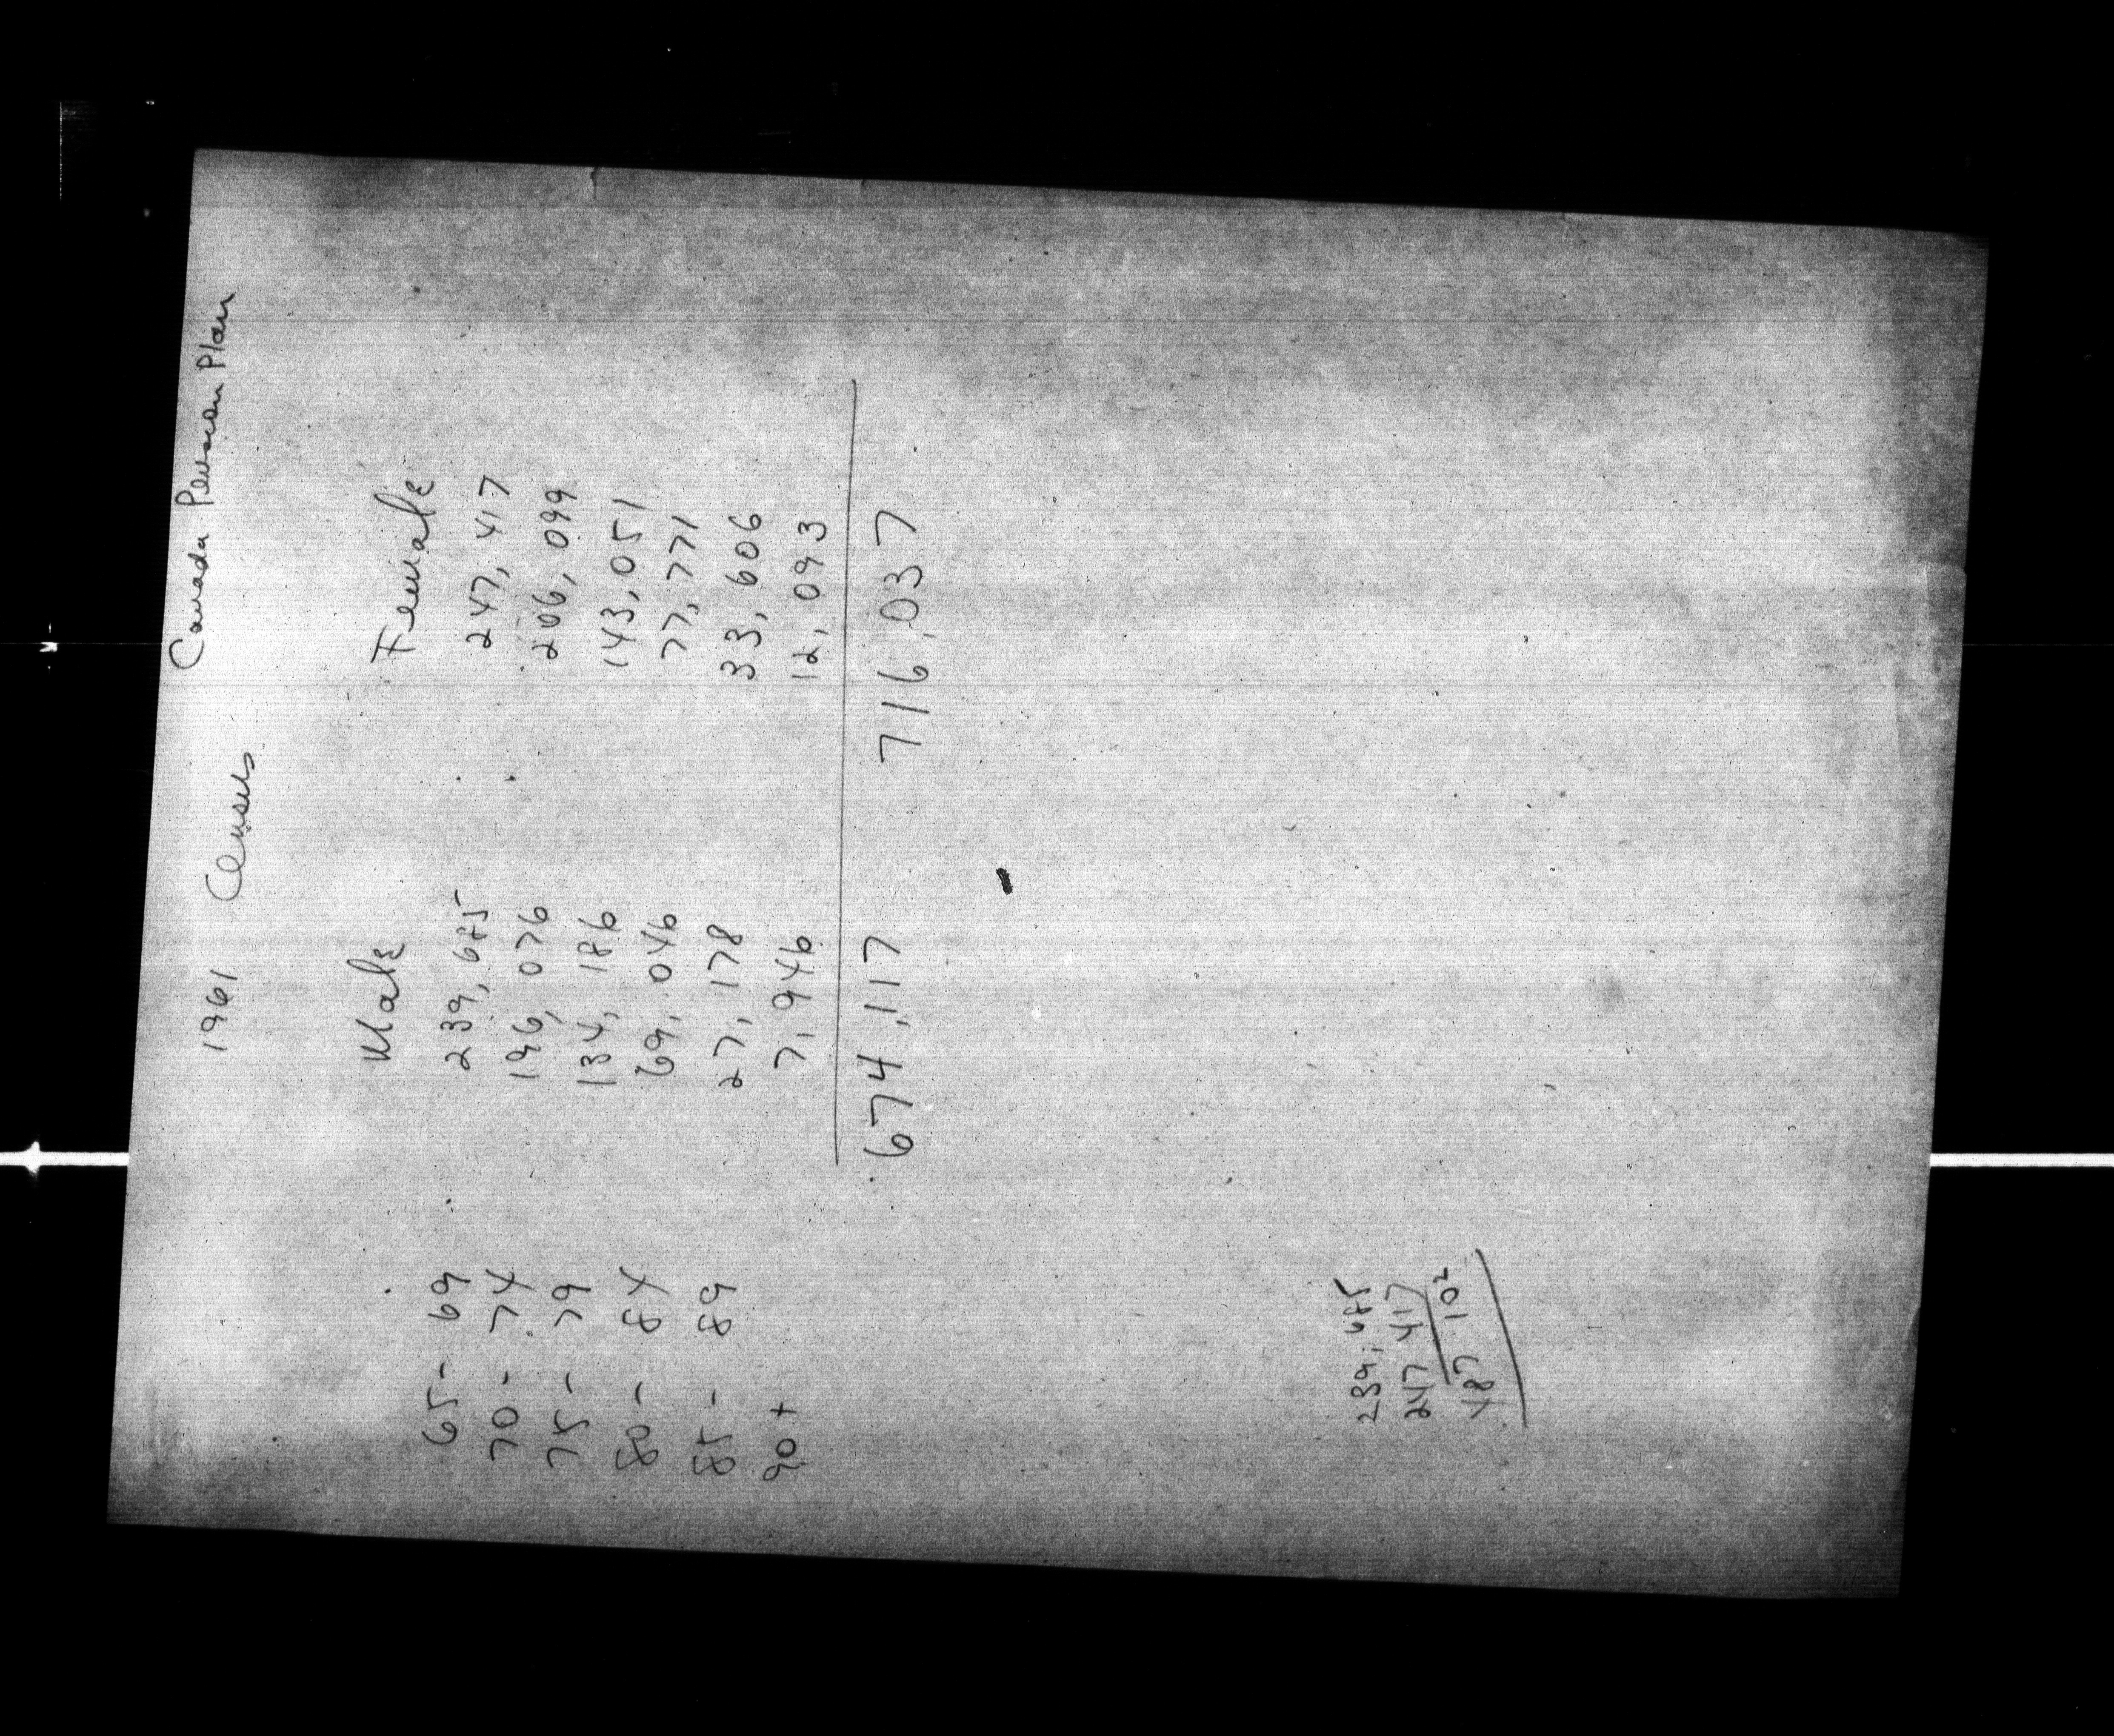 1961 Census Canada Pension Plan
Male Female
65 - 69 239,685 247,417
70 - 74 196,076 206,099
75 - 79 134,186 143,051
80 - 84 69,046 77,771
85 - 89 27,178 33,606
90+ 7,946 12,093
674,117 716,037
239,685
247 417
487 102